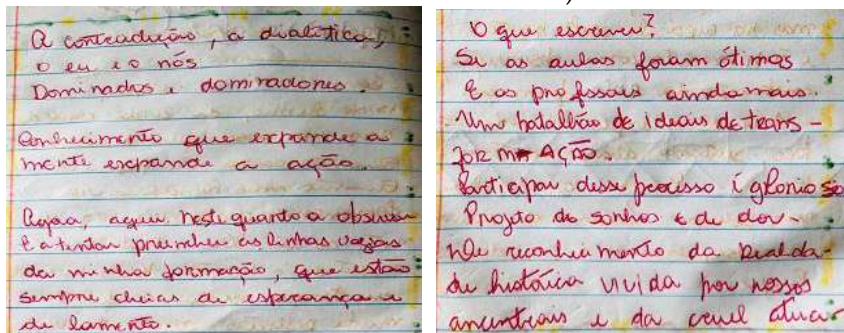 A contradição, a dialética,
o eu e o nós
Dominados e dominadores.
Conhecimento que expande a
mente expande a ação.
Agora, aqui neste quarto a observar
e a tentar preencher as linhas vazias
da minha formação, que estão
sempre cheias de esperança e
de lamento.
O que escrever?
Se as aulas foram ótimas
E os professores ainda mais.
Um batalhão de ideais de trans-
for mAÇÃO.
Participar desse processo é glorioso
Projeto de sonhos e de dor.
De reconhecimento da realida-
de histórica vivida por nossos
ancentrais e da cruel